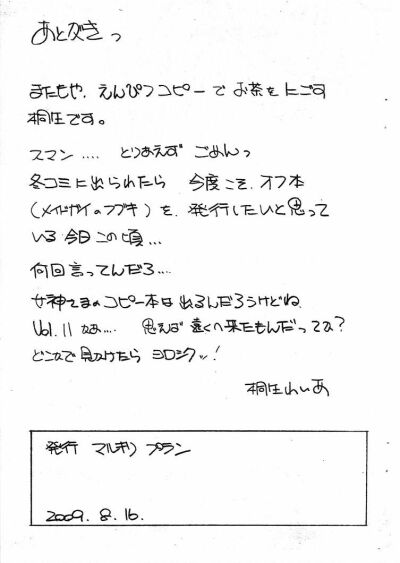 あとがきっ
またもや、えんぴつコピーでお茶をにごす
桐生です。
スマン.... とりあえず ごめんっ
冬コミに出られたら 今度こそ、オフ本
(メイドガイのフブキ)を、発行したいと思って
いる今日この頃...
何回言ってんだろ....
女神さまのコピー本は出るんだろうけどね、
Vol.11 かぁ.... 思えば遠くへ来たもんだってな?
どこかで見かけたら ヨロシクッ!
桐生れいあ
発行 マルキ プラン
2009.8.16.